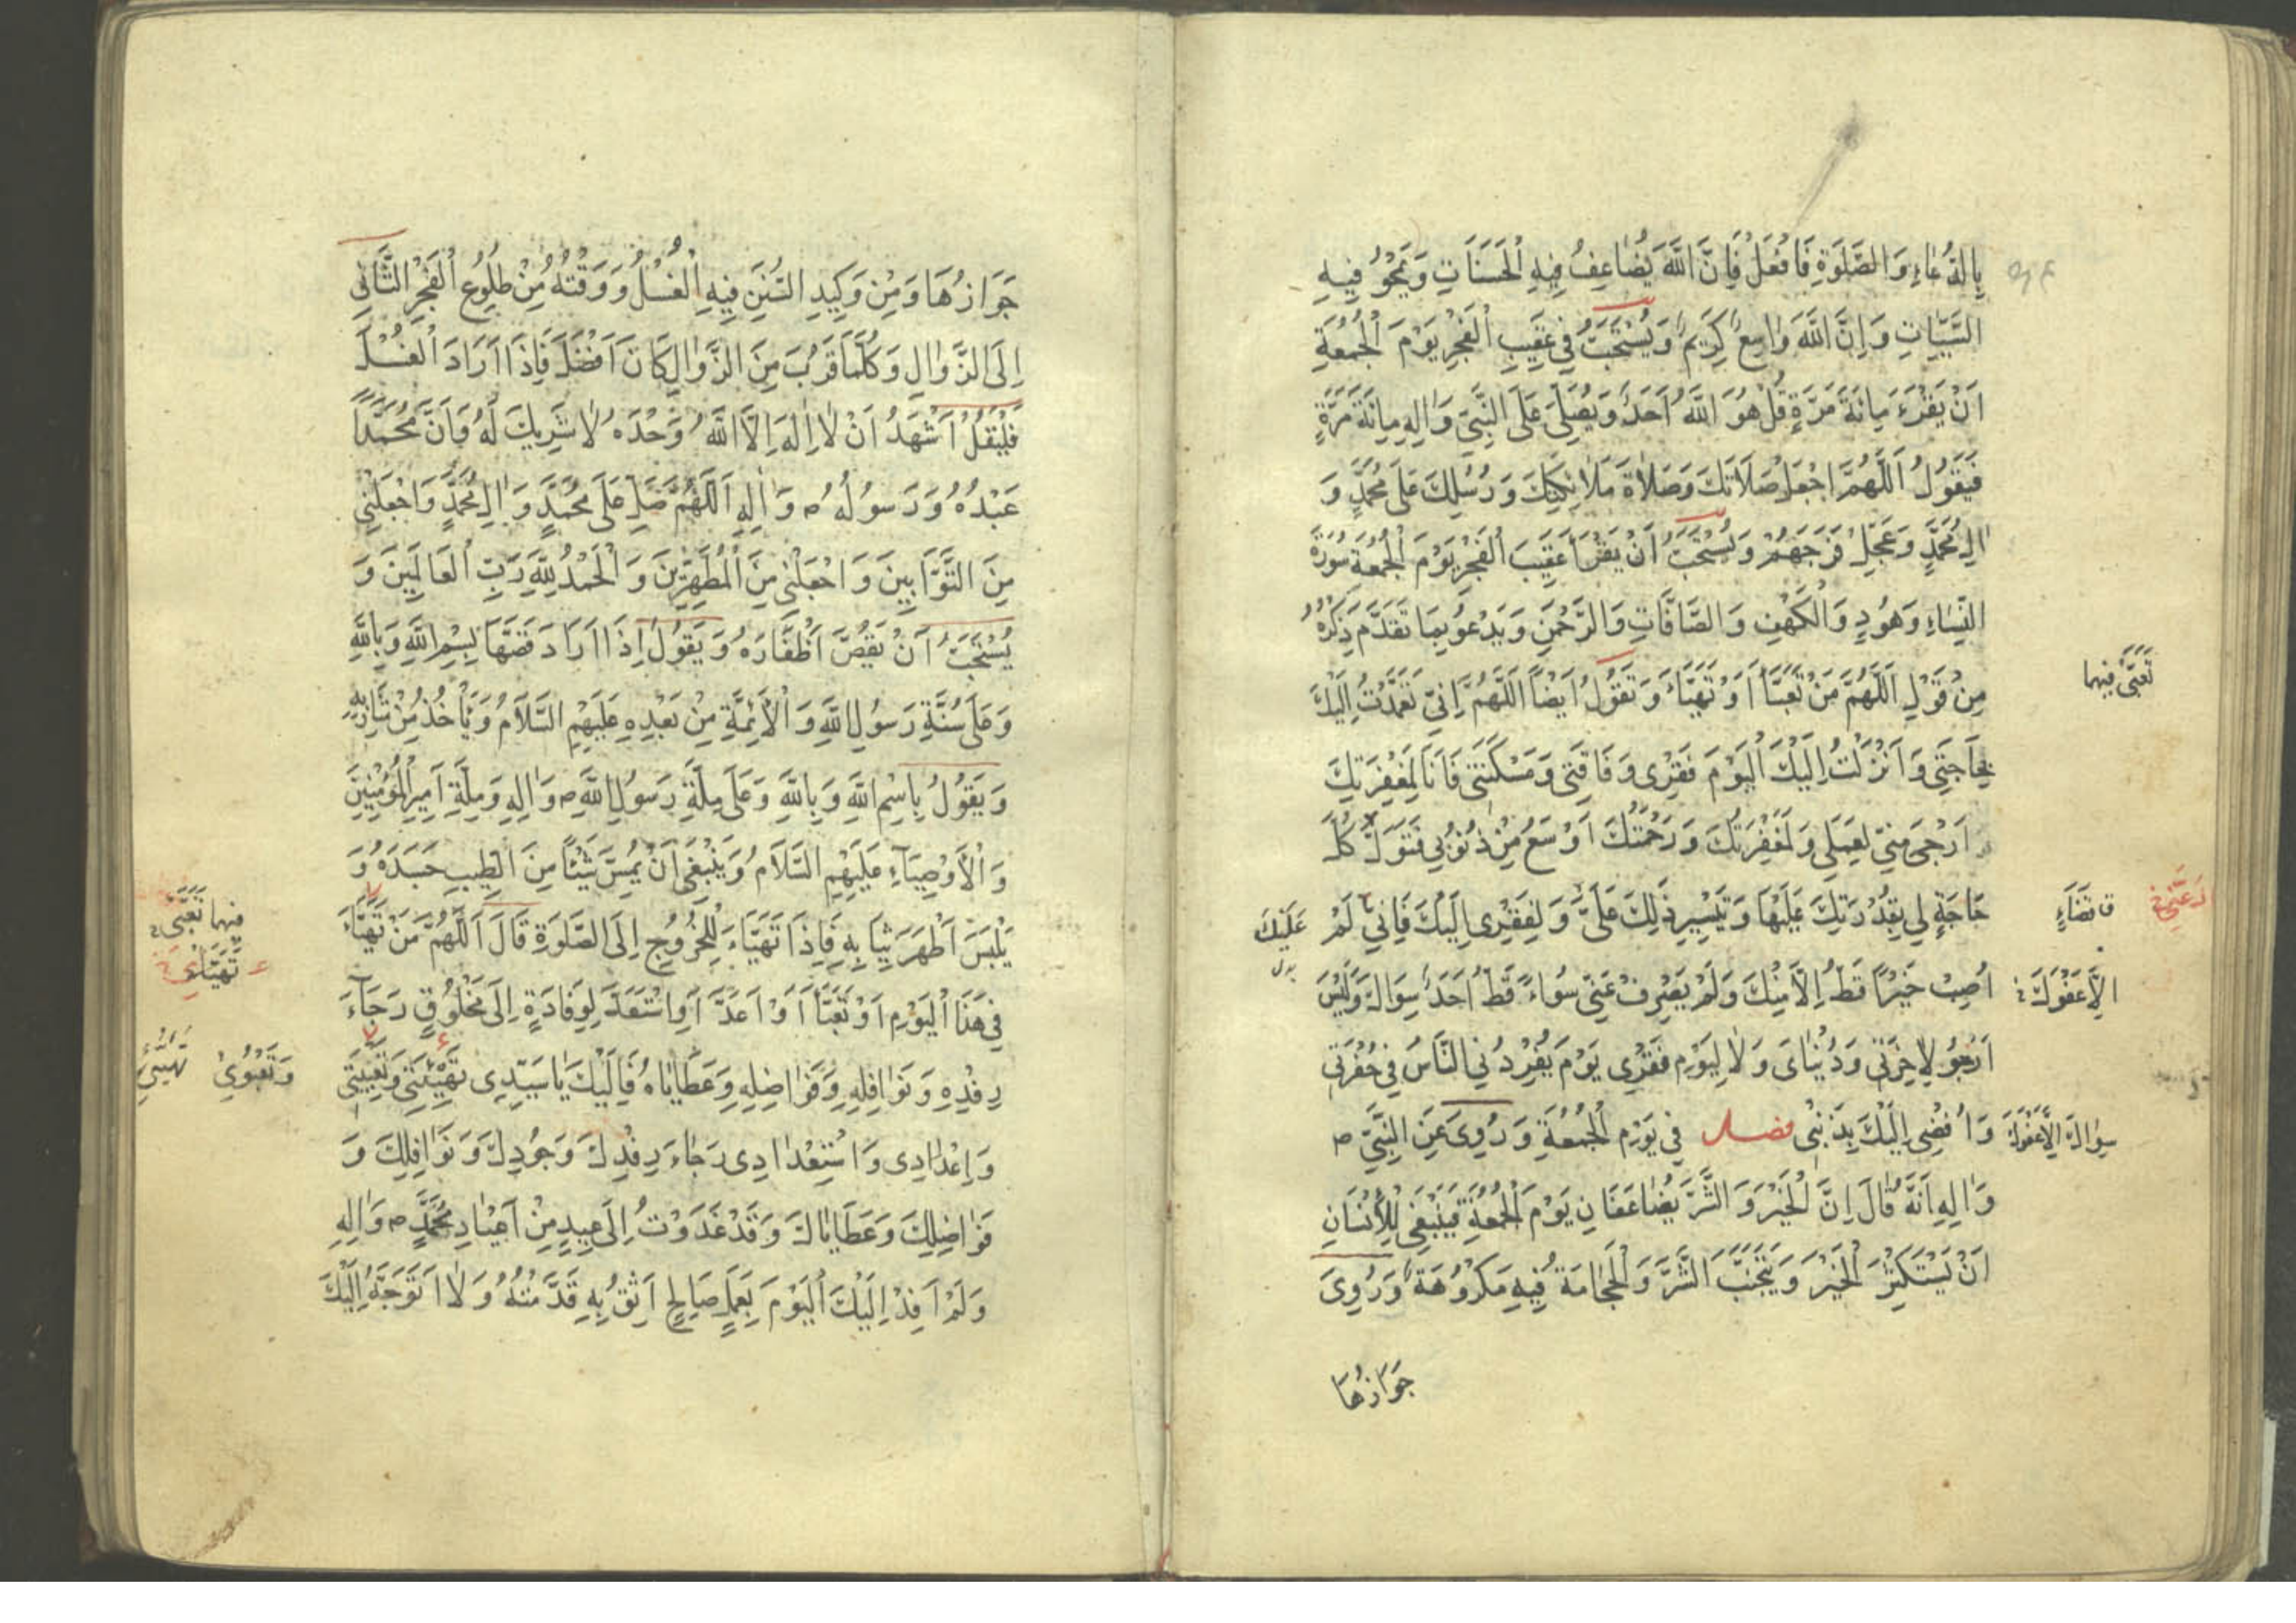 بِالدُّعَاءِ وَالصَّلَوةِ فَافْعَلْ فَإِنَّ اللَّهَ يُضَاعِفُ فِيهِ الْحَسَنَاتِ وَيَمْحُو فِيهِ
السَّيِّئَاتِ وَإِنَّ اللَّهَ وَاسِعٌ كَرِيمٌ وَيُسْتَحَبُّ فِي عَقِيبِ الْفَجْرِ يَوْمَ الْجُمُعَةِ
أَنْ يَقْرَءَ مِائَةَ مَرَّةٍ قُلْ هُوَ اللَّهُ أَحَدٌ وَيُصَلِّيَ عَلَى النَّبِيِّ وَالِهِ مِائَةَ مَرَّةٍ
فَيَقُولُ اَللَّهُمَّ اجْعَلْ صَلَاتَكَ وَصَلَاةَ مَلَائِكَتِكَ وَرُسُلِكَ عَلَى مُحَمَّدٍ وَ
الِ مُحَمَّدٍ وَعَجِّلْ فَرَجَهُمْ وَيُسْتَحَبُّ أَنْ يَقْرَأَ عَقِيبَ الْفَجْرِ يَوْمَ الْجُمُعَةِ سُورَةَ
النِّسَاءِ وَهُودٍ وَالْكَهْفِ وَالصَّافَّاتِ وَالرَّحْمَنِ وَيَدْعُو بِمَا تَقَدَّمَ ذِكْرُهُ
مِنْ قَوْلِ اَللَّهُمَّ مَنْ تَعَبَّأَ أَوْ تَهَيَّأَ وَتَقُولُ أَيْضًا اَللَّهُمَّ إِنِّي تَعَمَّدْتُ إِلَيْكَ
تَعَبَّى فيهما
بِحَاجَتِي وَأَنْزَلْتُ إِلَيْكَ الْيَوْمَ فَقْرِي وَفَاقَتِي وَمَسْكَنَتِي فَأَنَا لِمَغْفِرَتِكَ
أَرْجَى مِنِّي لِعَمَلِي وَلَمَغْفِرَتُكَ وَرَحْمَتُكَ أَوْسَعُ مِنْ ذُنُوبِي فَتَوَلَّ كُلَّ
حَاجَةٍ لِي بِقُدْرَتِكَ عَلَيْهَا وَتَيْسِيرِ ذَلِكَ عَلَيَّ وَلِفَقْرِي إِلَيْكَ فَإِنِّي لَمْ
قَضَاءِ
عَلَيْكَ
بدل
أُصِبْ خَيْرًا قَطُّ إِلَّا مِنْكَ وَلَمْ يَصْرِفْ عَنِّي سُوءًا قَطُّ أَحَدٌ سِوَاكَ وَلَيْسَ
أَرْجُو لِآخِرَتِي وَدُنْيَاىَ وَلَا لِيَوْمِ فَقْرِي يَوْمَ يُفْرِدُنِي النَّاسُ فِي حُفْرَتِي
وَأُفْضِي إِلَيْكَ بِذَنْبِي فصل فِي يَوْمِ الْجُمُعَةِ وَرُوِيَ عَنِ النَّبِيِّ ص
وَالِهِ أَنَّهُ قَالَ إِنَّ الْخَيْرَ وَالشَّرَّ يُضَاعَفَانِ يَوْمَ الْجُمُعَةِ فَيَنْبَغِي لِلْإِنْسَانِ
أَنْ يَسْتَكْثِرَ الْخَيْرَ وَيَتَجَنَّبَ الشَّرَّ وَالْحِجَامَةُ فِيهِ مَكْرُوهَةٌ وَرُوِيَ
جَوَازُهَا
جَوَازُهَا وَمِنْ وَكِيدِ السُّنَنِ فِيهِ الْغُسْلُ وَوَقْتُهُ مِنْ طُلُوعِ الْفَجْرِ الثَّانِي
إِلَى الزَّوَالِ وَكُلَّمَا قَرُبَ مِنَ الزَّوَالِ كَانَ أَفْضَلَ فَإِذَا أَرَادَ الْغُسْلَ
فَلْيَقُلْ أَشْهَدُ أَنْ لَا إِلَهَ إِلَّا اللَّهُ وَحْدَهُ لَا شَرِيكَ لَهُ وَأَنَّ مُحَمَّدًا
عَبْدُهُ وَرَسُولُهُ ص وَالِهِ اَللَّهُمَّ صَلِّ عَلَى مُحَمَّدٍ وَالِ مُحَمَّدٍ وَاجْعَلْنِي
مِنَ التَّوَّابِينَ وَاجْعَلْنِي مِنَ الْمُطَهَّرِينَ وَالْحَمْدُ لِلَّهِ رَبِّ الْعَالَمِينَ وَ
يُسْتَحَبُّ أَنْ يَقُصَّ أَظْفَارَهُ وَيَقُولُ إِذَا أَرَادَ قَصَّهَا بِسْمِ اللَّهِ وَبِاللَّهِ
وَعَلَى سُنَّةِ رَسُولِ اللَّهِ وَالْأَئِمَّةِ مِنْ بَعْدِهِ عَلَيْهِمِ السَّلَامُ وَيَأْخُذُ مِنْ شَارِبِهِ
وَيَقُولُ بِاسْمِ اللَّهِ وَبِاللَّهِ وَعَلَى مِلَّةِ رَسُولِ اللَّهِ ص وَالِهِ وَمِلَّةِ أَمِيرِ الْمُؤْمِنِينَ
وَالْأَوْصِيَاءِ عَلَيْهِمِ السَّلَامُ وَيَنْبَغِي أَنْ يَمَسَّ شَيْئًا مِنَ الطِّيبِ جَسَدَهُ وَ
يَلْبَسَ أَطْهَرَ ثِيَابِهِ فَإِذَا تَهَيَّأَ لِلْخُرُوجِ إِلَى الصَّلَوةِ قَالَ اَللَّهُمَّ مَنْ تَهَيَّأَ
فيهما تَعَبَّى
فِي هَذَا الْيَوْمِ أَوْ تَعَبَّأَ أَوْ أَعَدَّ أَوِ اسْتَعَدَّ لِوِفَادَةٍ إِلَى مَخْلُوقٍ رَجَاءَ
رِفْدِهِ وَنَوَافِلِهِ وَفَوَاضِلِهِ وَعَطَايَاهُ فَإِلَيْكَ يَا سَيِّدِي تَهْيِئَتِي وَتَعْبِيَتِي
وَإِعْدَادِي وَاسْتِعْدَادِي رَجَاءَ رِفْدِكَ وَجُودِكَ وَنَوَافِلِكَ وَ
فَوَاضِلِكَ وَعَطَايَاكَ وَقَدْ غَدَوْتُ إِلَى عِيدٍ مِنْ أَعْيَادِ مُحَمَّدٍ ص وَالِهِ
وَلَمْ أَفِدْ إِلَيْكَ الْيَوْمَ بِعَمَلٍ صَالِحٍ أَثِقُ بِهِ قَدَّمْتُهُ وَلَا أَتَوَجَّهُ إِلَيْكَ